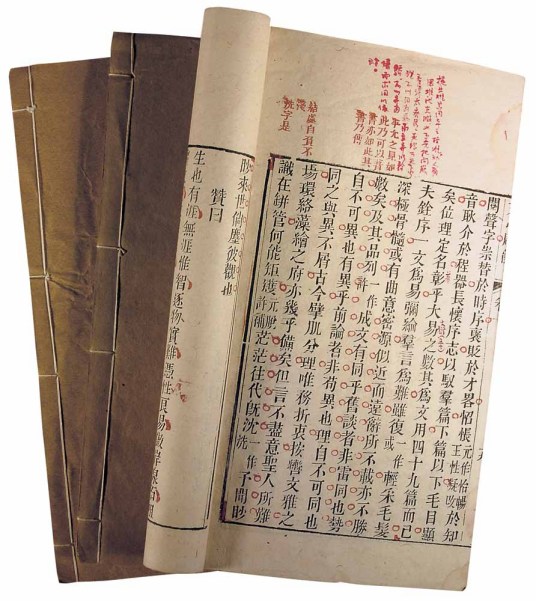 閱聲字崇替於時序褒貶於才畧怊悵元作怡暢王性凝改於知
音耿介於程器長懷序志以馭羣篇下篇以下毛目顯
矣位理定名彰乎大易之數其爲文用四十九篇而已
夫銓序一文爲易彌綸羣言爲難雖復一作或輕采毛髮
深極骨髓或有曲意密源似近而遠辭所不載亦不勝
數矣及其品列一作許成文有同乎舊談者非雷同也勢
自不可異也有異乎前論者非苟異也理自不可同也
同之與異不屑古今擘肌分理唯務折衷按轡文雅之
場環絡藻繪之府亦幾乎備矣但言不盡意聖人所難
識在缾管何能矩矱元脫許補茫茫往代旣沈一作洗予聞眇
眇來世倘塵彼觀也
贊曰
生也有涯無涯惟智逐物實難憑性良易傲岸泉石咀
洗字是